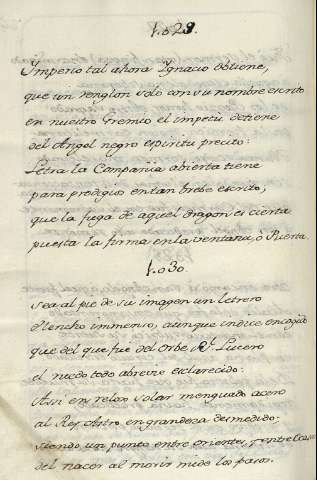 1.029.
Imperio tal ahora Ignacio obtiene,
que un renglon solo con su nombre escrito
en nuestro Gremio el impetu detiene
del Angel negro espiritu precito:
Letra la Compañia abierta tiene
para prodigio en tan brebe escrito,
que la fuga de aquel dragon es cierta
puesta la firma en la ventana, ò Puerta
1.030.
Sea al pie de su imagen un letrero
Elencho immenso, aunque indice encogido
que del que fue del Orbe Rl. Lucero
el ruedo todo abrevie esclarecido:
Assi en relox solar menguado acero
al Rey Astro en grandeza desmedido:
siendo un punto entre orientes, y entre
del nacer al morir mide los pasos.